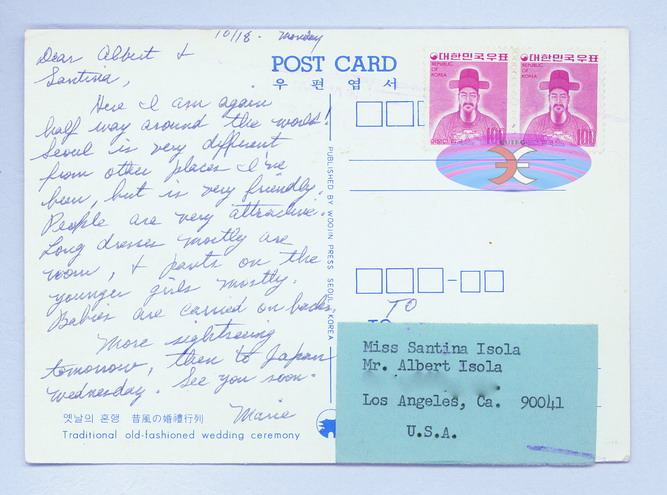 10/18. Monday
Dear Albert &
Santina,
Here I am again
half way around the world!
Seoul is very different
from other places I've
been, but is very friendly.
People are very attractive.
Long dresses mostly are
worn, & pants on the
younger girls mostly.
Babies are carried on backs.
More sightseeing
tomorrow, then to Japan
Wednesday. See you soon.
Marie
옛날의 혼행 昔風の婚禮行列
Traditional old-fashioned wedding ceremony
POST CARD
우편엽서
PUBLISHED BY WOOJIN PRESS SEOUL KOREA
대한민국우표
REPUBLIC
OF
KOREA
100
대한민국우표
REPUBLIC
OF
KOREA
100
TO
TO
Miss Santina Isola
Mr. Albert Isola
Los Angeles, Ca. 90041
U.S.A.